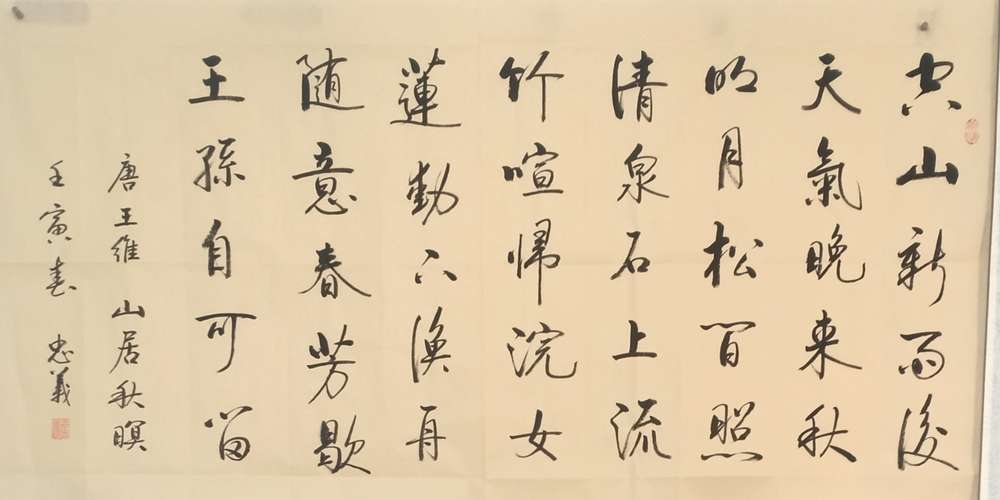 空山新雨後
天氣晚来秋
明月松間照
清泉石上流
竹喧歸浣女
蓮動下漁舟
随意春芳歇
王孫自可留
唐王維 山居秋暝
壬寅春 忠義